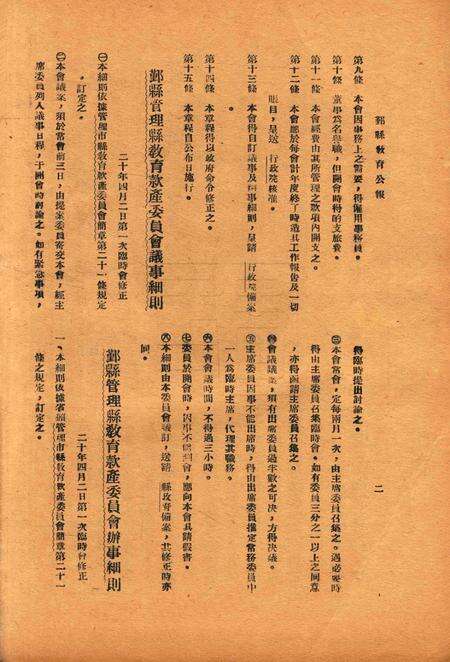 鄞縣教育公報
二
第九條　本會因事務上之需要，得僱用事務員。
第十條　董事爲名譽職，但開會時得酌支旅費。
第十一條　本會經費由其所管理之款項內開支之。
第十二條　本會應於每會計年度終了時造具工作報告及一切
賬目，呈送　行政院核准。
第十三條　本會得自訂議事及辦事細則，呈請　行政院備案
。
第十四條　本章程得以政府命令修正之。
第十五條　本章程自公布日施行。
鄞縣管理縣教育款產委員會議事細則
二十年四月二日第一次臨時會修正
㊀本細則依據管理市縣教育款產委員會簡章第二十一條規定
，訂定之。
㊁本會議案，須於常會前三日，由提案委員寄交本會，經主
席委員列入議事日程，于開會時討論之。如有緊急事項，
得臨時提出討論之。
㊂本會常會，定每兩月一次，由主席委員召集之。遇必要時
得由主席委員召集臨時會。如有委員三分之一以上之同意
，亦得函請主席委員召集之。
㊃會議議案，須有出席委員過半數之可決，方得決議。
㊄主席委員因事不能出席時，得由出席委員推定常務委員中
一人爲臨時主席，代理其職務。
㊅本會會議時間，不得過三小時。
㊆委員於開會時，因事不能到會，應向本會具請假書。
㊇本細則由本委員會議訂，送請　縣政府備案，其修正時亦
同。
鄞縣管理縣教育款產委員會辦事細則
二十年四月二日第一次臨時會修正
一、本細則依據省頒管理市縣教育款產委員會簡章第二十一
條之規定，訂定之。